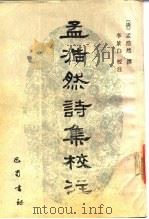 孟浩然詩集校注
〔唐〕孟浩然 撰
李景白 校注
巴蜀書社